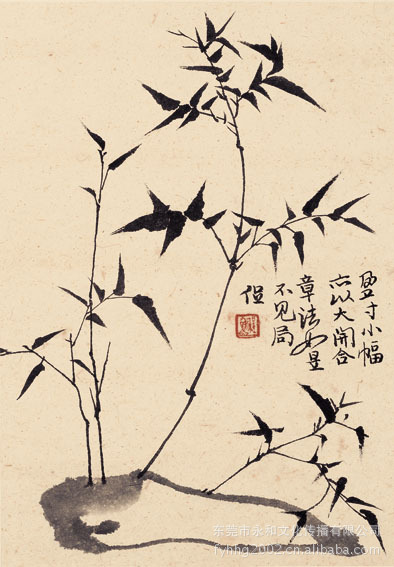 盈寸小幅
亦以大開合
章法如是
不见局
促
东莞市永和文化传播有限公司
fyhhg2002.cn.alibaba.com